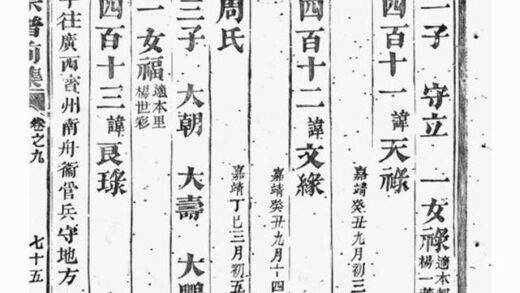 一子 守立 一女祿 適本
楊一
四百十一 諱天祿
嘉靖癸丑九月初三
四百十二 諱文緣
嘉靖癸丑九月十四
周氏
嘉靖丁巳三月初五
三子 大朝 大壽 大鵬
一女福 適本里
楊世彩
四百十三 諱良琭
年往廣西賓州南丹衞管兵守地方
宗譜前集 卷之九 七十五